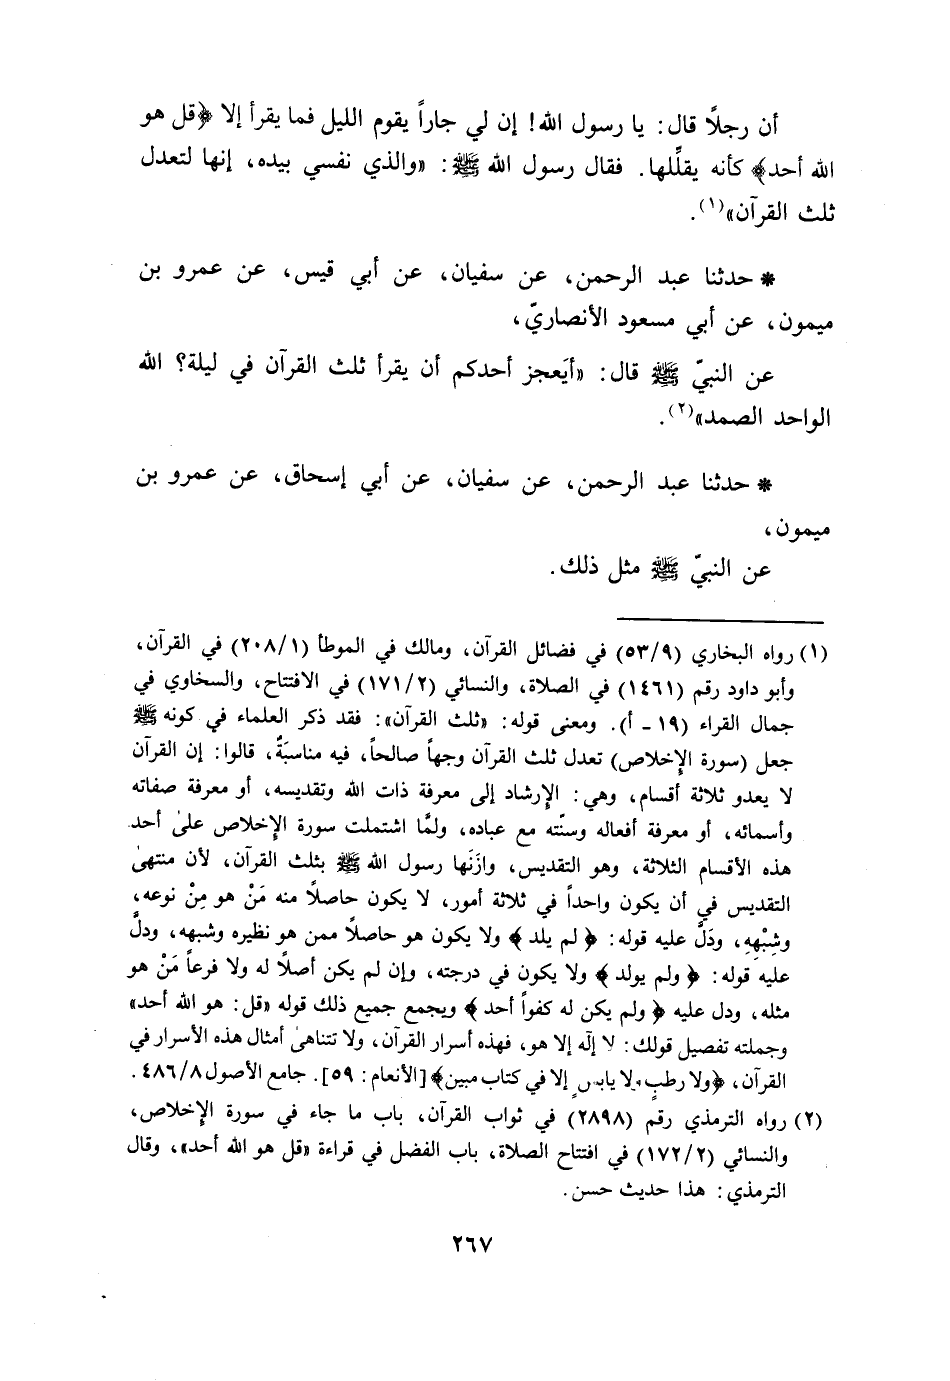 أن رجلاً قال: يا رسول الله! إن لي جاراً يقوم الليل فما يقرأ إلا ﴿قل هو
الله أحد﴾ كأنه يقلِّلها. فقال رسول الله ﷺ: «والذي نفسي بيده، إنها لتعدل
ثلث القرآن»(١).
* حدثنا عبد الرحمن، عن سفيان، عن أبي قيس، عن عمرو بن
ميمون، عن أبي مسعود الأنصاريّ،
عن النبيّ ﷺ قال: «أيَعجز أحدكم أن يقرأ ثلث القرآن في ليلة؟ الله
الواحد الصمد»(٢).
* حدثنا عبد الرحمن، عن سفيان، عن أبي إسحاق، عن عمرو بن
ميمون،
عن النبيّ ﷺ مثل ذلك.
(١) رواه البخاري (٥٣/٩) في فضائل القرآن، ومالك في الموطأ (٢٠٨/١) في القرآن،
وأبو داود رقم (١٤٦١) في الصلاة، والنسائي (١٧١/٢) في الافتتاح، والسخاوي في
جمال القراء (١٩ - أ). ومعنى قوله: «ثلث القرآن»: فقد ذكر العلماء في كونه ﷺ
جعل (سورة الإخلاص) تعدل ثلث القرآن وجهاً صالحاً، فيه مناسبَةٌ، قالوا: إن القرآن
لا يعدو ثلاثة أقسام، وهي: الإرشاد إلى معرفة ذات الله وتقديسه، أو معرفة صفاته
وأسمائه، أو معرفة أفعاله وسنّته مع عباده، ولمَّا اشتملت سورة الإخلاص علىٰ أحد
هذه الأقسام الثلاثة، وهو التقديس، وازَنَها رسول الله ﷺ بثلث القرآن، لأن منتهىٰ
التقديس في أن يكون واحداً في ثلاثة أمور، لا يكون حاصلاً منه مَنْ هو مِنْ نوعه،
وشِبْهِهِ، ودَلَّ عليه قوله: ﴿ لم يلد ﴾ ولا يكون هو حاصلاً ممن هو نظيره وشبهه، ودلَّ
عليه قوله: ﴿ ولم يولد ﴾ ولا يكون في درجته، وإن لم يكن أصلاً له ولا فرعاً مَنْ هو
مثله، ودل عليه ﴿ ولم يكن له كفواً أحد ﴾ ويجمع جميع ذلك قوله «قل: هو الله أحد»
وجملته تفصيل قولك: لا إلٰه إلا هو، فهذه أسرار القرآن، ولا تتناهىٰ أمثال هذه الأسرار في
القرآن، ﴿ولا رطبٍ ولا يابسٍ إلا في كتاب مبين﴾ [الأنعام: ٥٩]. جامع الأصول ٤٨٦/٨.
(٢) رواه الترمذي رقم (٢٨٩٨) في ثواب القرآن، باب ما جاء في سورة الإخلاص،
والنسائي (١٧٢/٢) في افتتاح الصلاة، باب الفضل في قراءة «قل هو الله أحد»، وقال
الترمذي: هذا حديث حسن.
٢٦٧